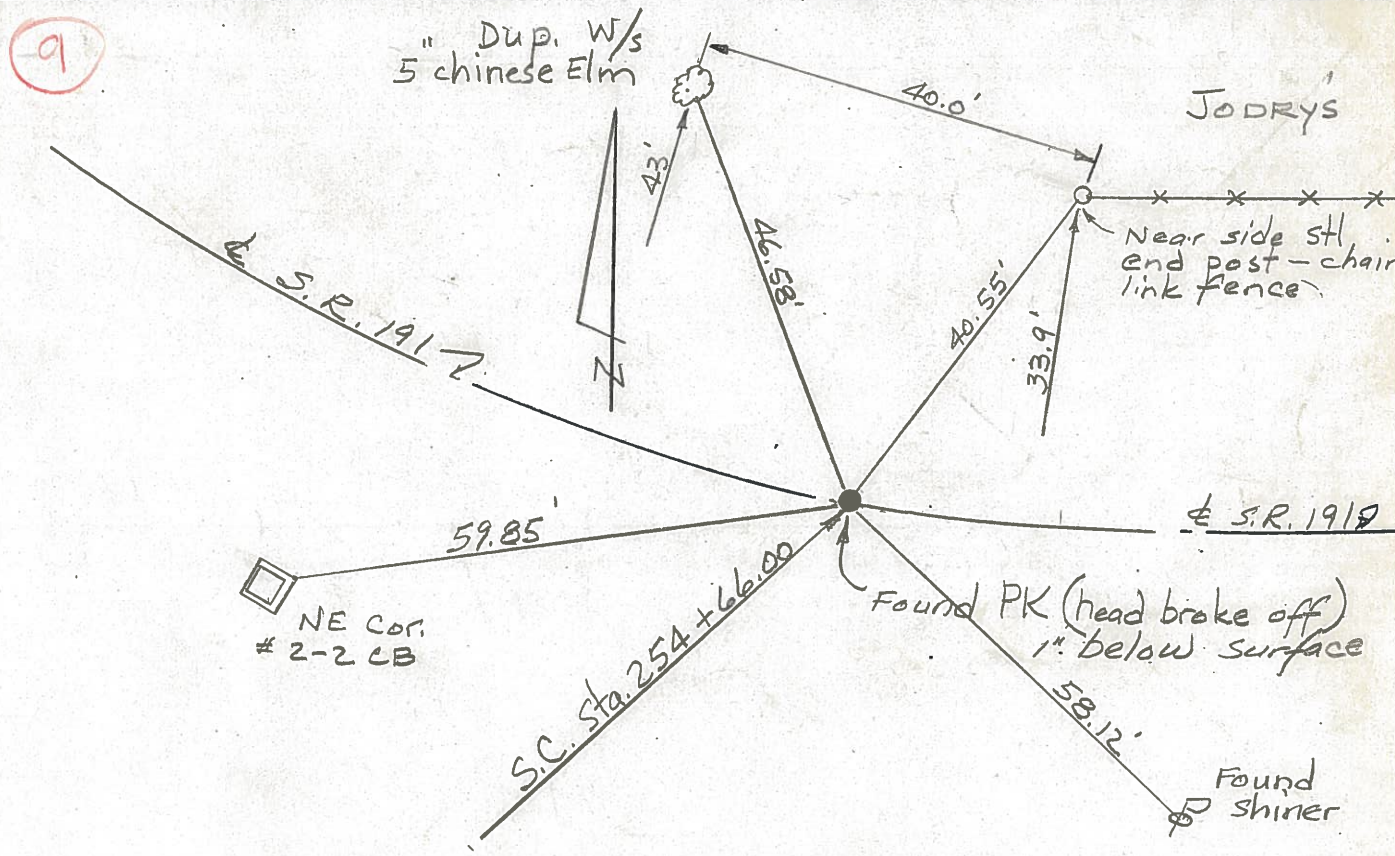 9
" Dup. W/s
5" chinese Elm
40.0'
JODRY'S
43'
46.58'
40.55'
33.9'
Near side stl
end post - chain
link fence
℄ S.R. 191
N
59.85'
℄ S.R. 191
NE Cor.
# 2-2 CB
S.C. Sta. 254 + 66.00
Found PK (head broke off)
1" below surface
58.12'
Found
shiner